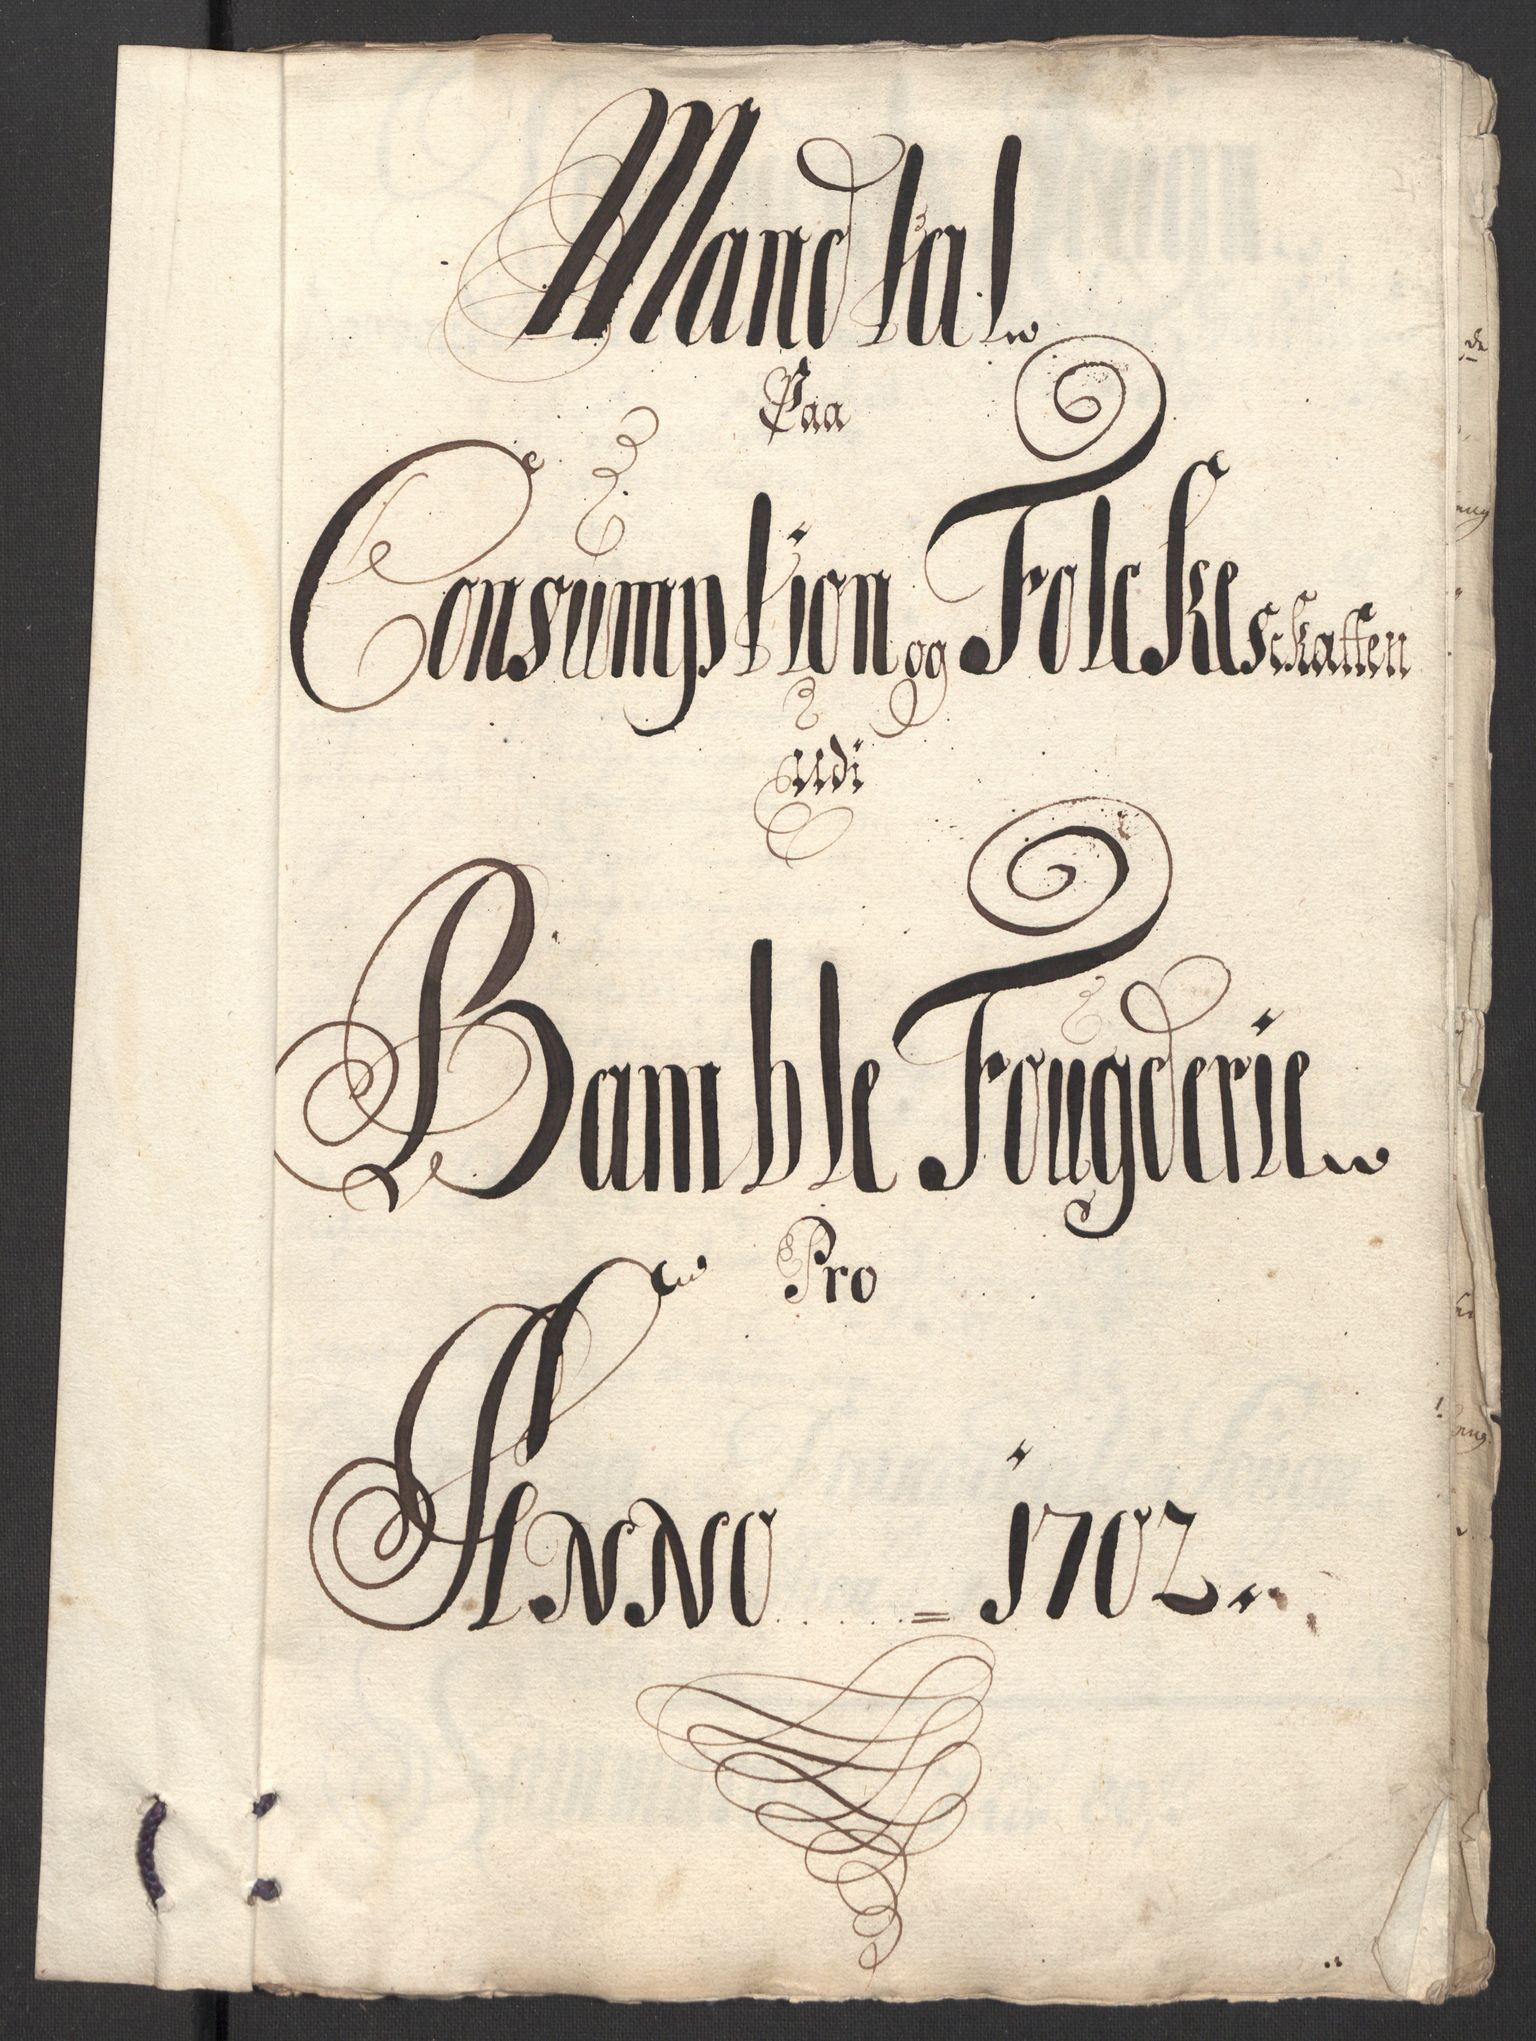 Mandtal
Paa
Consumption og Folckeschatten
udi
Bamble Fougderie
Pro
ANNO = 1702.